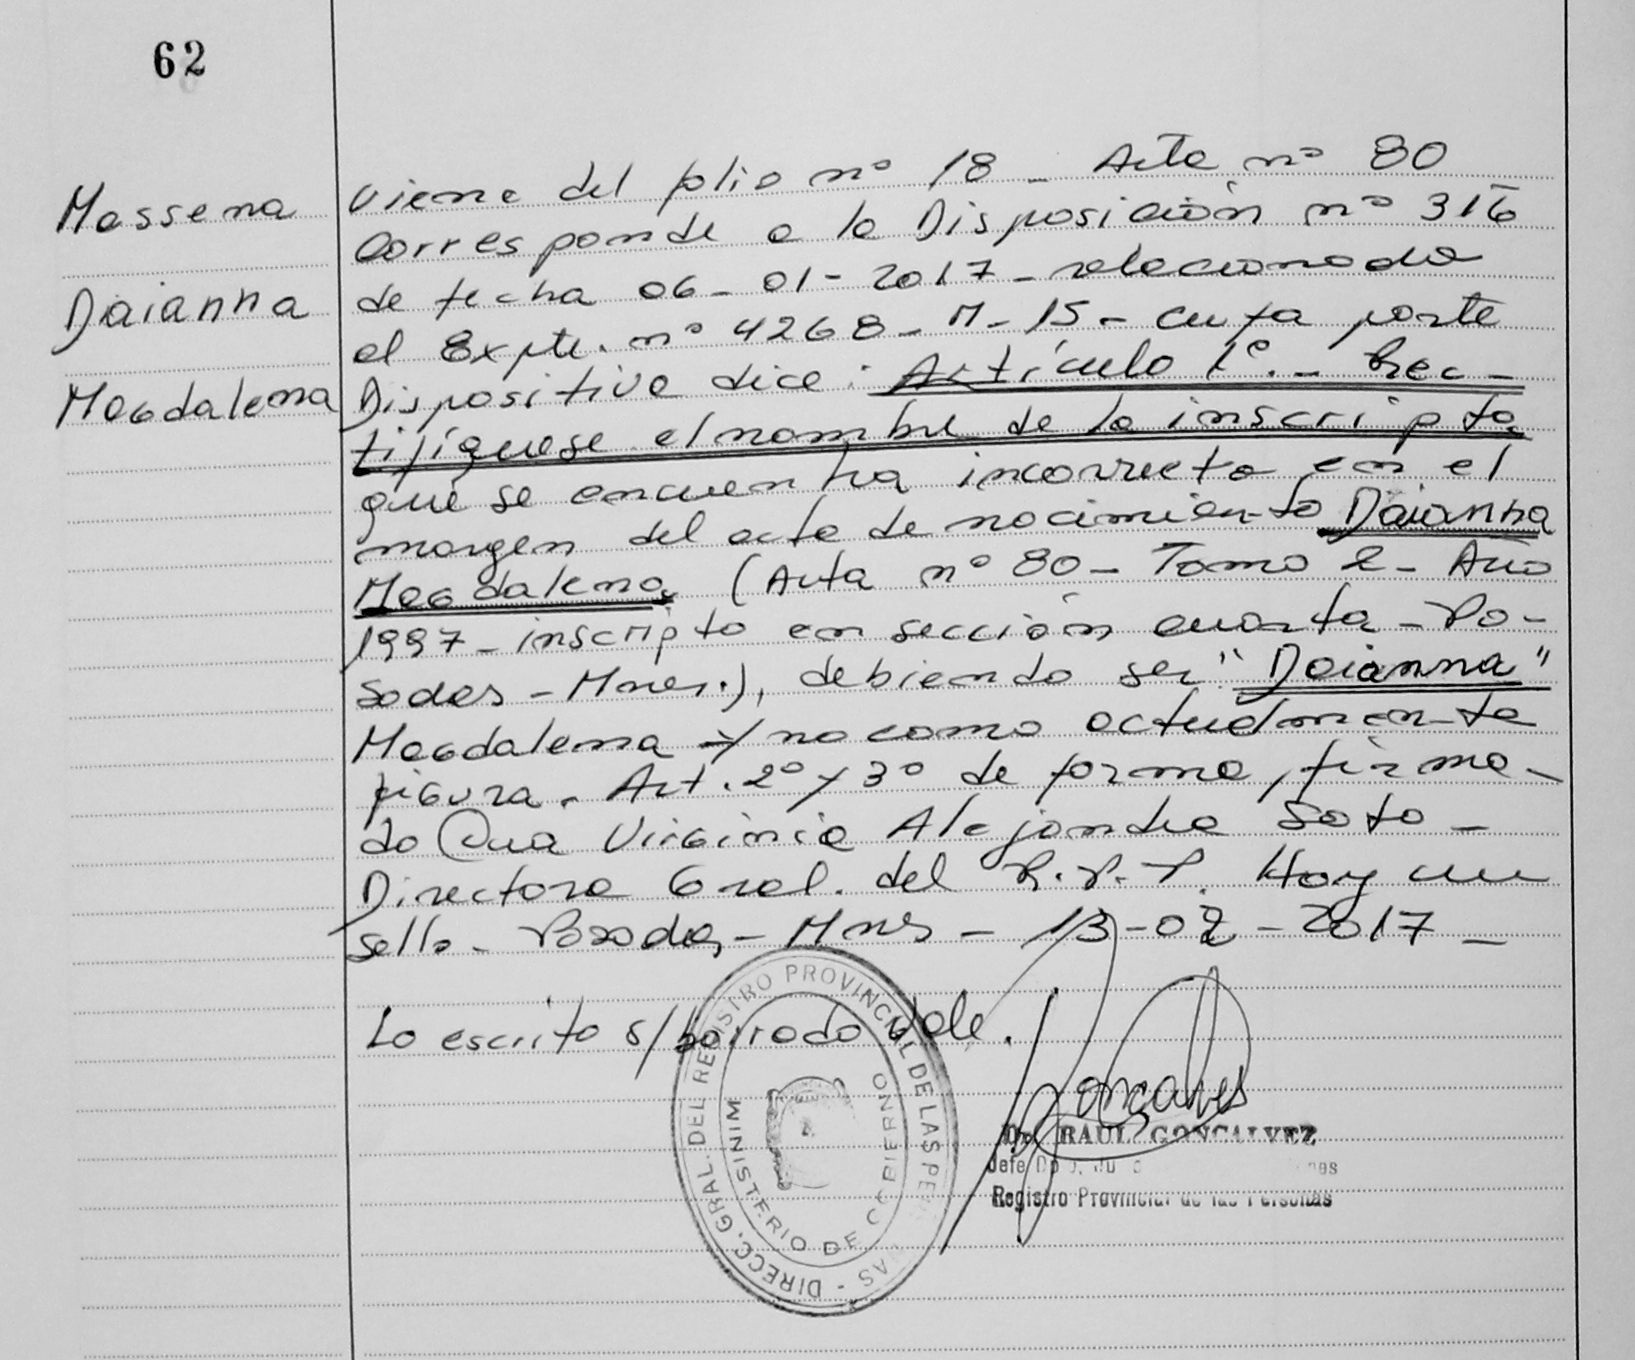 62
Massena
Daianna
Magdalena
Viene del folio nº 18 - Acta nº 80
Corresponde a la Disposición nº 316
de fecha 06-01-2017 - relacionado
al Expte. nº 4268-M-15- cuya parte
Dispositiva dice: Artículo 1º.- Rec-
tifíquese el nombre de la inscripta
que se encuentra incorrecto en el
margen del acta de nacimiento Daianna
Magdalena (Acta nº 80 - Tomo 2 - Año
1997 - inscripto en sección cuarta - Po-
sadas - Mnes.), debiendo ser "Daianna"
Magdalena y no como actualmente
figura. Art. 2º y 3º de forma, firma-
do Virginia Alejandra Soto -
Directora Gral. del R.P.P. Hay un
sello - Posadas - Mnes - 13-02-2017 -
Lo escrito s/borrado Vale.
DIRECC. GRAL. DEL REGISTRO PROVINCIAL DE LAS
MINISTERIO DE GOBIERNO
Dr. RAUL GONCALVEZ
Registro Provincial de las Personas